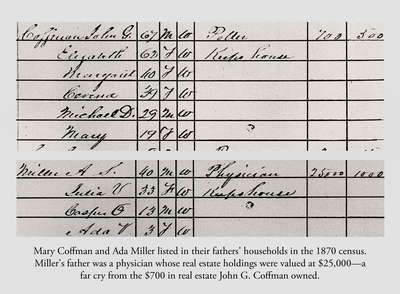 Coffman John G. 67 M W Potter 700 500
Elizabeth 62 F W Keeps house
Margaret 40 F W
39 F W
Michael D. 29 M W
Mary 19 F W
Miller A S. 40 M W Physician 25000 1000
Julia V 33 F W Keeps house
Casper O 13 M W
Ada V 3 F W
Mary Coffman and Ada Miller listed in their fathers’ households in the 1870 census.
Miller’s father was a physician whose real estate holdings were valued at $25,000—a
far cry from the $700 in real estate John G. Coffman owned.